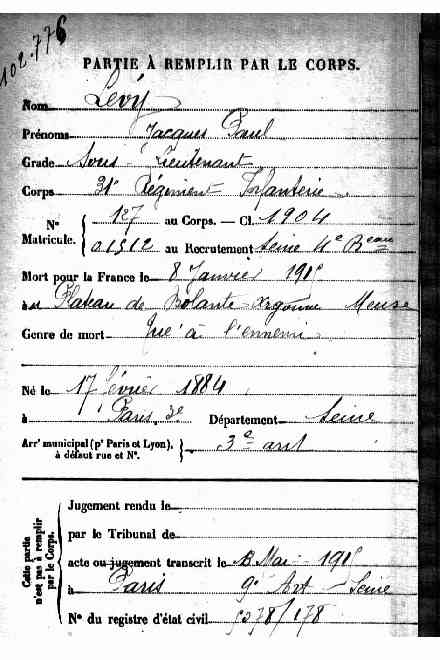 102.776
PARTIE À REMPLIR PAR LE CORPS.
Nom Lévy
Prénoms Jacques Paul
Grade Sous-Lieutenant
Corps 31e Régiment Infanterie
N° Matricule. { 127 au Corps. — Cl. 1904
au Recrutement Seine 4e Beau
Mort pour la France le 8 Janvier 1915
Plateau de Bolante Argonne Meuse
Genre de mort Tué à l'ennemi
Né le 17 février 1884
à Paris. 3e Département Seine
Arrt municipal (pr Paris et Lyon), à défaut rue et N°. } 3e arrt
Cette partie n'est pas à remplir par le Corps.
Jugement rendu le
par le Tribunal de
acte ou jugement transcrit le Mai 1915
à Paris 9e Arrt - Seine
N° du registre d'état civil 178